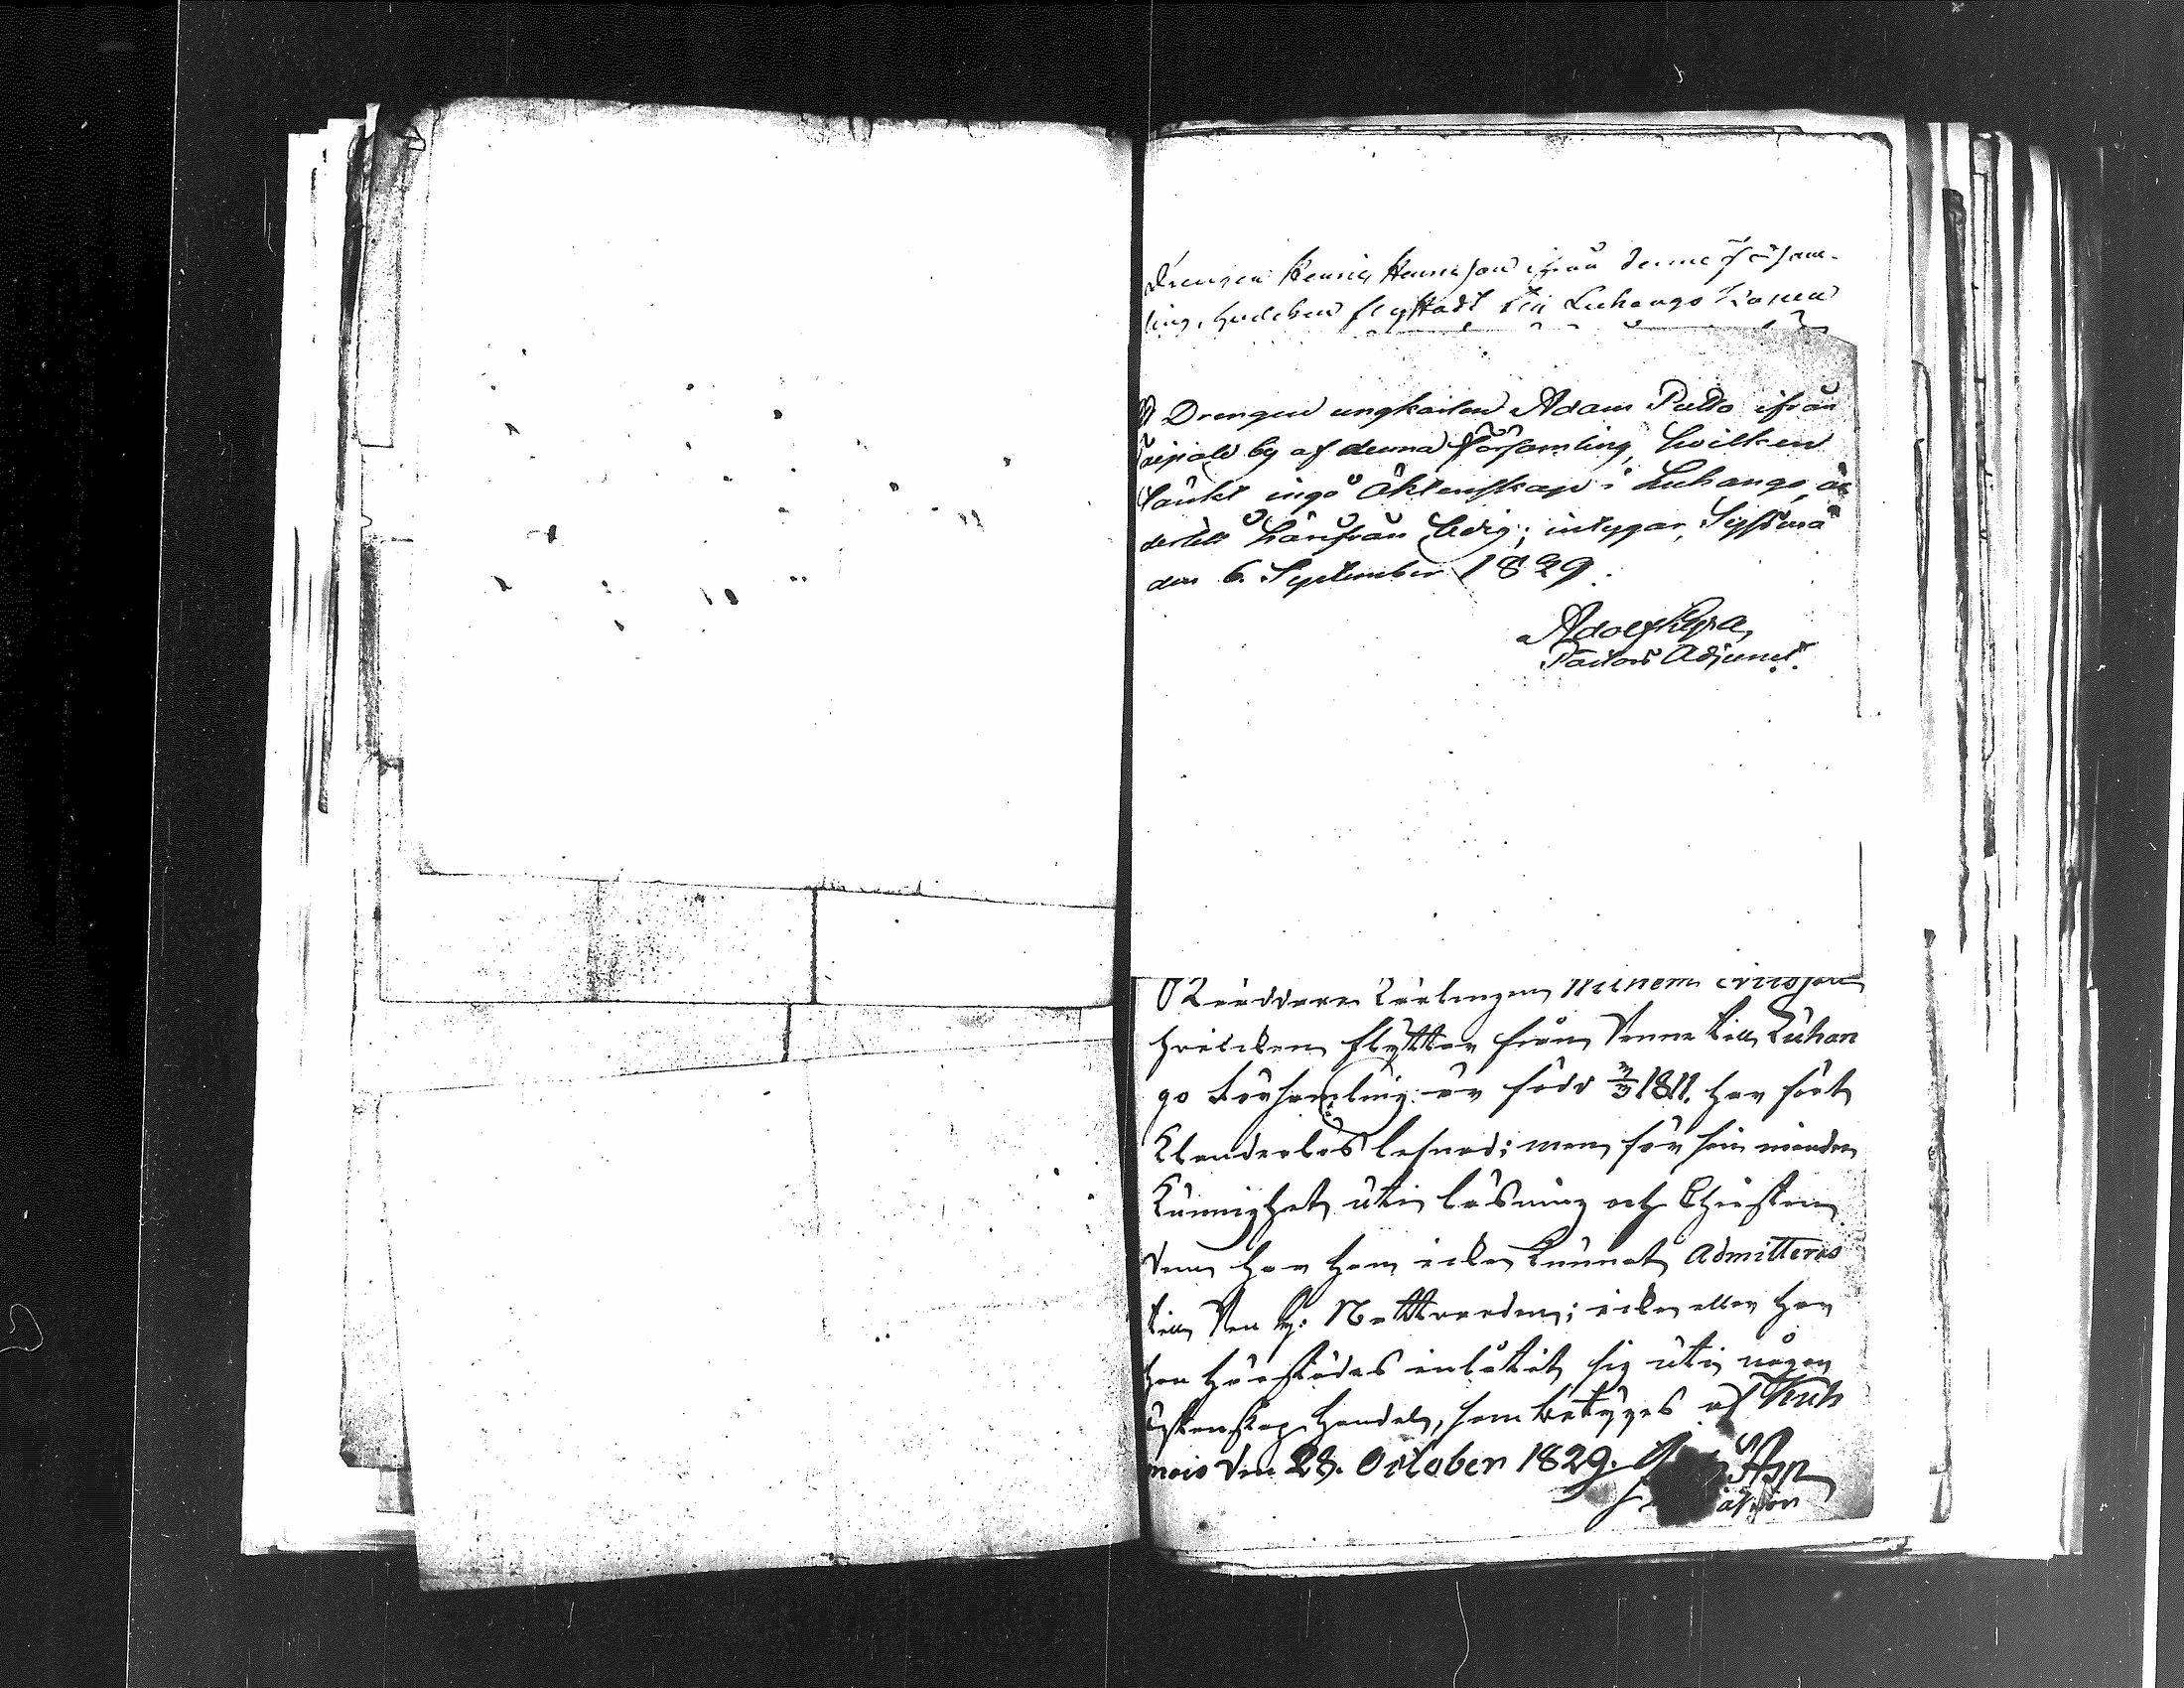 Drengen Henric Henricson ifrån denne Försam-
ling, hvilcken flyttadt till Luhango
Drengen ungkarlen Adam Pullo ifrån
by af denna församling, hvilken
tänkt ingå Äktenskap i Luhango, är
dertill härifrån ledig; intygar, Sysmä
den 6. September 1829.
Adolf
Pastors Adjunct.
hvilcken flÿttar från denne till Luhan
go Församling: är född 1811. har fört
Klanderlös lefnad; men för sin mindre
Kunnighet uti läsning och Christen
dom har han icke kunnat Admitteras
till den H: Nattvarden; icke eller har
han härstädes inlåtit sig uti någon
Äktenskaps handel, som betÿges af Kuh
mois den 28. October 1829.